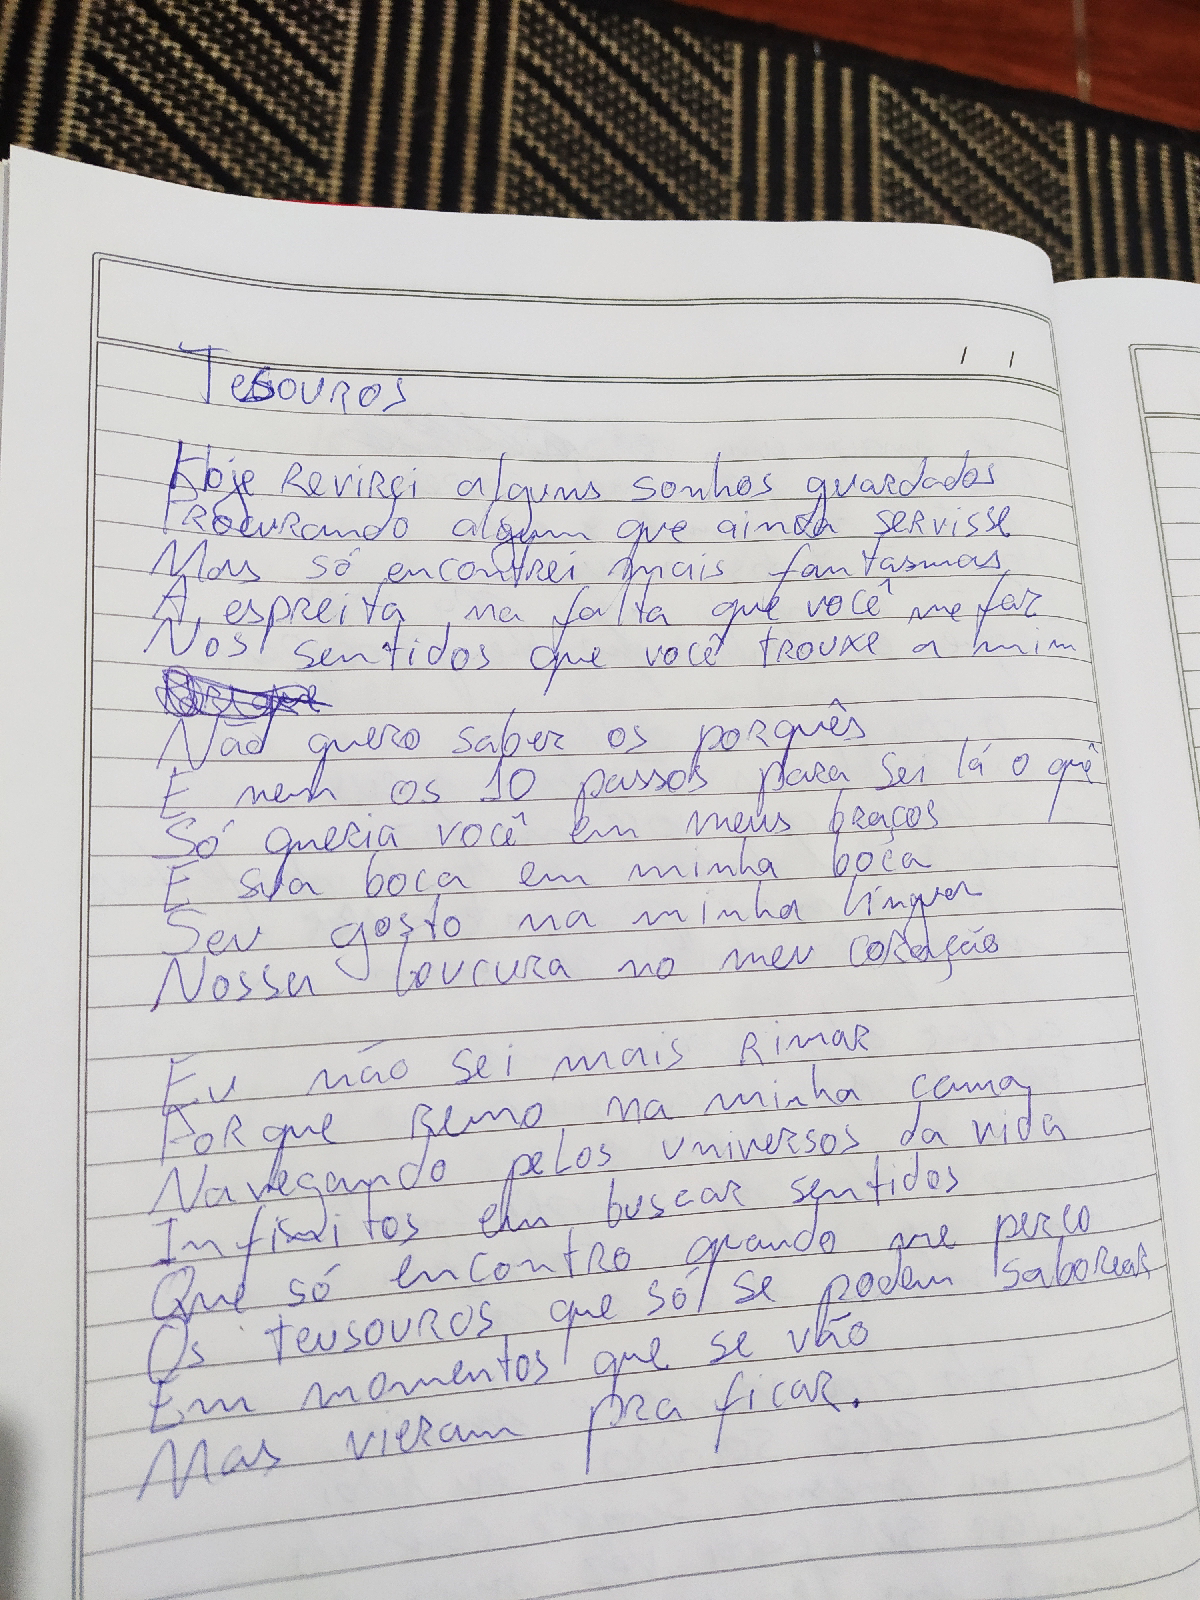 Tesouros
Hoje revirei alguns sonhos guardados
Procurando algum que ainda servisse
Mas só encontrei mais fantasmas
À espreita na falta que você me faz
Nos sentidos que você trouxe a mim
Não quero saber os porquês
E nem os 10 passos para sei lá o quê
Só queria você em meus braços
E sua boca em minha boca
Seu gosto na minha língua
Nossa loucura no meu coração
Eu não sei mais rimar
Porque remo na minha cama
Navegando pelos universos da vida
Infinitos em buscar sentidos
Que só encontro quando me perco
Os teusouros que só se podem saborear
Em momentos que se vão
Mas vieram pra ficar.